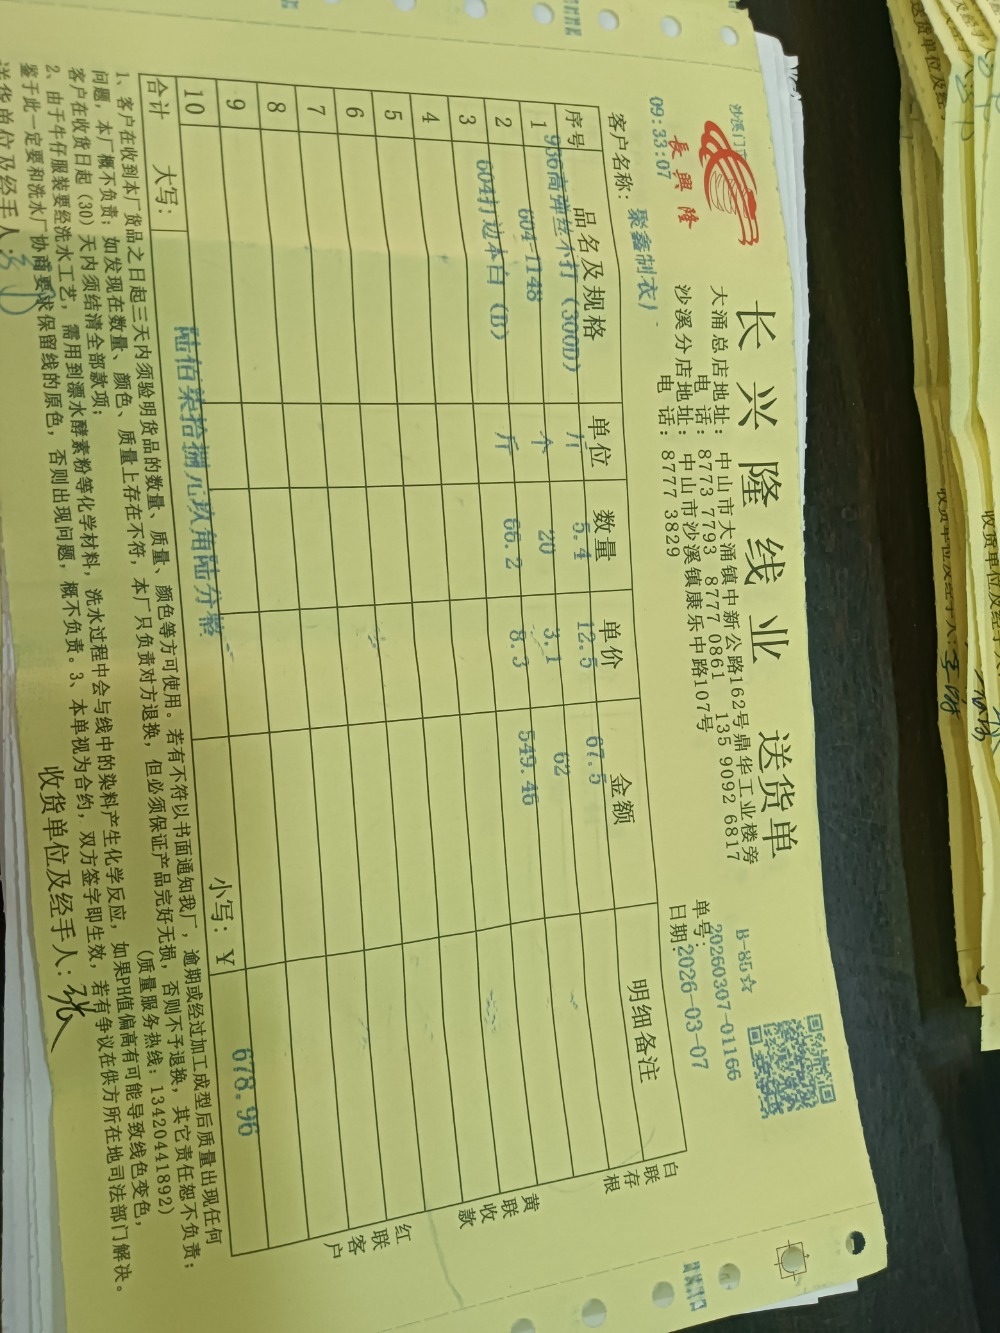 沙溪门市
長興隆
09:33:07
长兴隆线业 送货单
大涌总店地址：中山市大涌镇中新公路162号鼎华工业楼旁
电话：8773 7793 8777 0861 135 9092 6817
沙溪分店地址：中山市沙溪镇康乐中路107号
电话：8777 3829
B-85☆
单号：20260307-01166
日期：2026-03-07
客户名称：聚鑫制衣厂
序号 品名及规格 单位 数量 单价 金额 明细备注
936高弹丝不打（300D） 斤 5.4 12.5 67.5
1 604-1148 个 20 3.1 62
2 604打边本白（B） 斤 66.2 8.3 549.46
3
4
5
6
7
8
9
10 陆佰柒拾捌元玖角陆分整
合计 大写： 小写：￥ 678.96
白联存根
黄联收款
红联客户
1、客户在收到本厂货品之日起三天内须验明货品的数量、质量、颜色等方可使用。若有不符以书面通知我厂，逾期或经过加工成型后质量出现任何
问题，本厂概不负责；如发现在数量、颜色、质量上存在不符，本厂只负责对方退换，但必须保证产品完好无损，否则不予退换，其它责任恕不负责；
客户在收货日起（30）天内须结清全部款项； （质量服务热线：13420441892）
2、由于牛仔服装要经洗水工艺，需用到漂水酵素粉等化学材料，洗水过程中会与线中的染料产生化学反应，如果PH值偏高有可能导致线色变色，
鉴于此一定要和洗水厂协商要求保留线的原色，否则出现问题，概不负责。3、本单视为合约，双方签字即生效，若有争议在供方所在地司法部门解决。
送货单位及经手人：
收货单位及经手人：张
送货单位及经手人
收货单位及经手人：
收货单位及经手人：